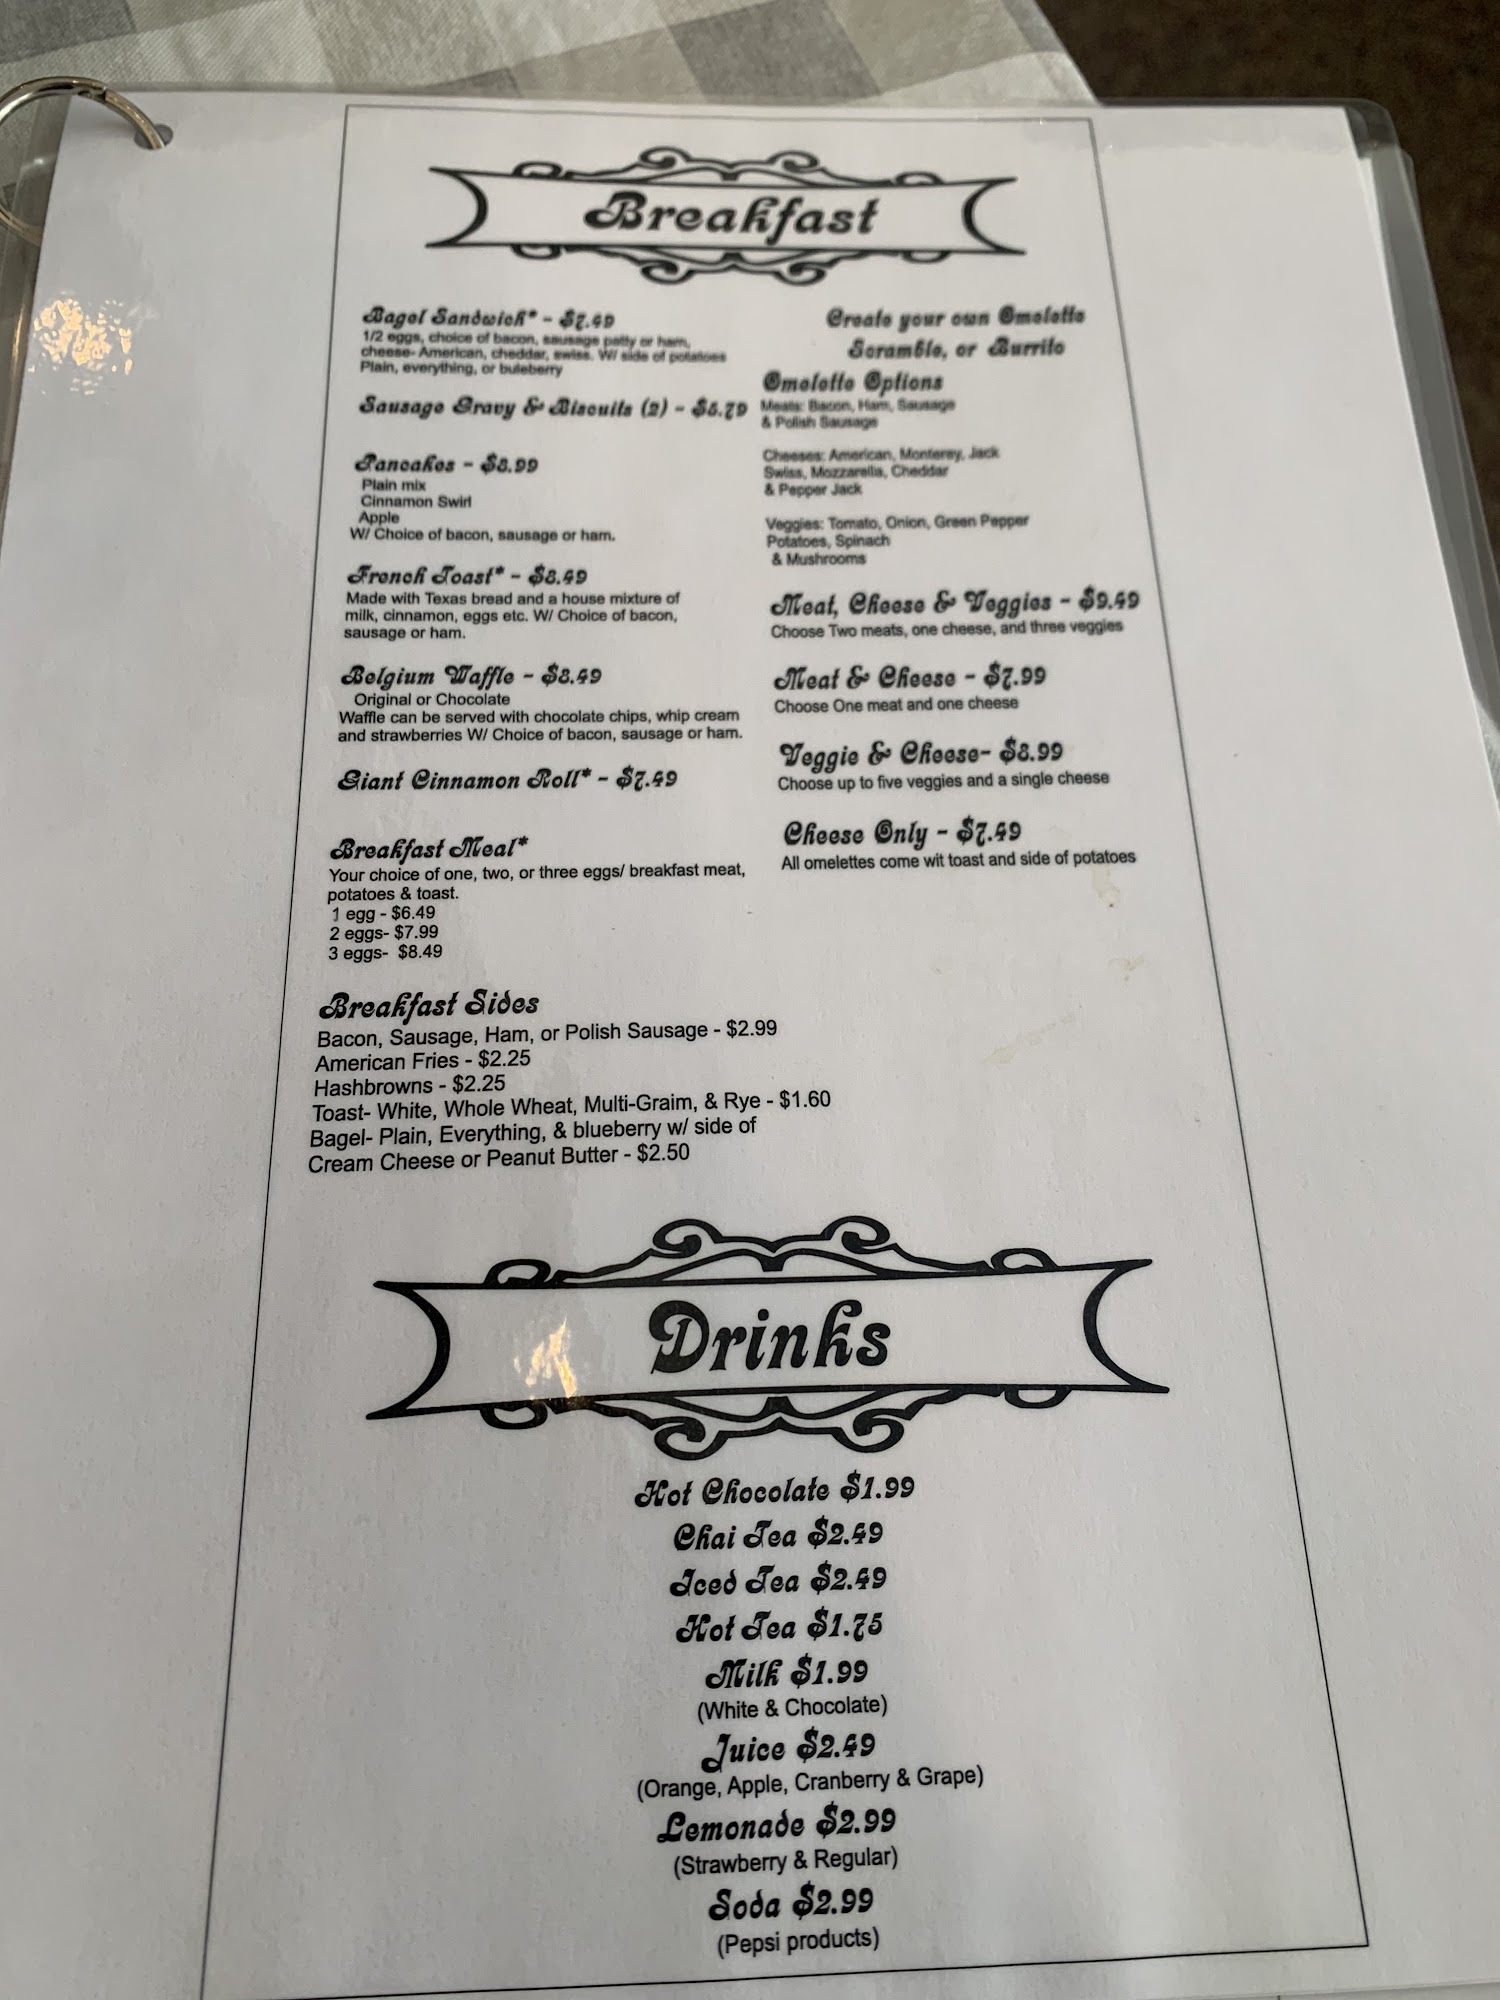 Breakfast
Bagel Sandwich* - $7.49
1/2 eggs, choice of bacon, sausage patty or ham,
cheese- American, cheddar, swiss. W/ side of potatoes
Plain, everything, or buleberry
Sausage Gravy & Biscuits (2) - $5.79
Pancakes - $8.99
Plain mix
Cinnamon Swirl
Apple
W/ Choice of bacon, sausage or ham.
French Toast* - $8.49
Made with Texas bread and a house mixture of
milk, cinnamon, eggs etc. W/ Choice of bacon,
sausage or ham.
Belgium Waffle - $8.49
Original or Chocolate
Waffle can be served with chocolate chips, whip cream
and strawberries W/ Choice of bacon, sausage or ham.
Giant Cinnamon Roll* - $7.49
Breakfast Meal*
Your choice of one, two, or three eggs/ breakfast meat,
potatoes & toast.
1 egg - $6.49
2 eggs- $7.99
3 eggs- $8.49
Create your own Omelette
Scramble, or Burrito
Omelette Options
Meats: Bacon, Ham, Sausage
& Polish Sausage
Cheeses: American, Monterey, Jack
Swiss, Mozzarella, Cheddar
& Pepper Jack
Veggies: Tomato, Onion, Green Pepper
Potatoes, Spinach
& Mushrooms
Meat, Cheese & Veggies - $9.49
Choose Two meats, one cheese, and three veggies
Meat & Cheese - $7.99
Choose One meat and one cheese
Veggie & Cheese- $8.99
Choose up to five veggies and a single cheese
Cheese Only - $7.49
All omelettes come wit toast and side of potatoes
Breakfast Sides
Bacon, Sausage, Ham, or Polish Sausage - $2.99
American Fries - $2.25
Hashbrowns - $2.25
Toast- White, Whole Wheat, Multi-Graim, & Rye - $1.60
Bagel- Plain, Everything, & blueberry w/ side of
Cream Cheese or Peanut Butter - $2.50
Drinks
Hot Chocolate $1.99
Chai Tea $2.49
Iced Tea $2.49
Hot Tea $1.75
Milk $1.99
(White & Chocolate)
Juice $2.49
(Orange, Apple, Cranberry & Grape)
Lemonade $2.99
(Strawberry & Regular)
Soda $2.99
(Pepsi products)